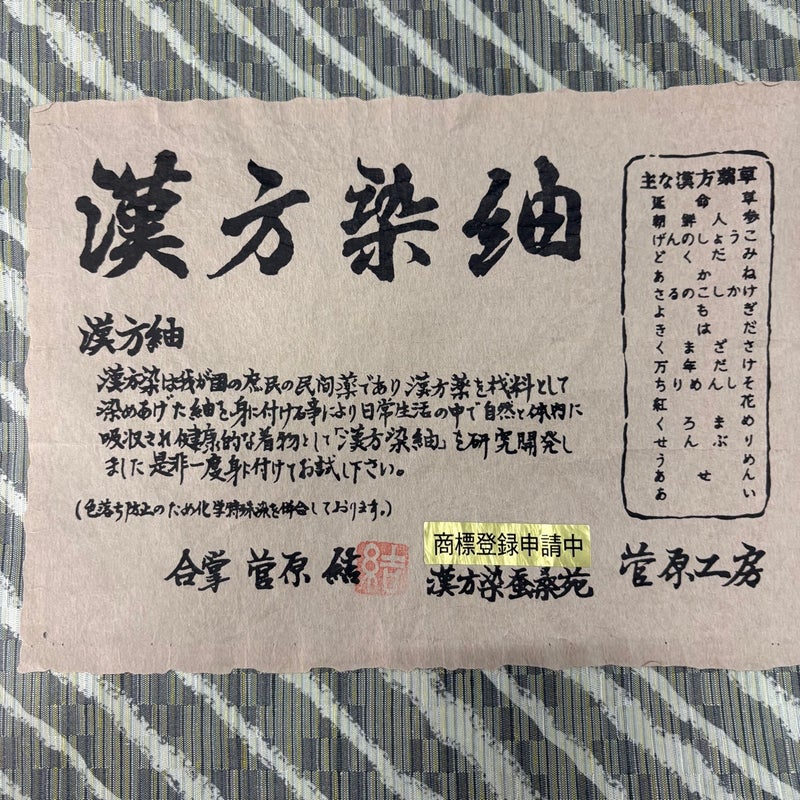 漢方染紬
漢方紬
漢方染は我が国の庶民の民間薬であり漢方薬を材料として
染めあげた紬を身に付ける事により日常生活の中で自然と体内に
吸収され健康的な着物として「漢方染紬」を研究開発し
ました是非一度身に付けてお試し下さい。
(色落ち防止のため化学特殊染を併合しております。)
合掌 菅原 結
商標登録申請中
漢方染蚕桑苑 菅原工房
主な漢方薬草
延命草
朝鮮人参
げんのしょうこ
どくだみ
あかね
さるのこしかけ
よもぎ
きはだ
くまざさ
万年だけ
ちりめんしそ
紅花
くろまめ
せんぶり
うめ
ああせんい